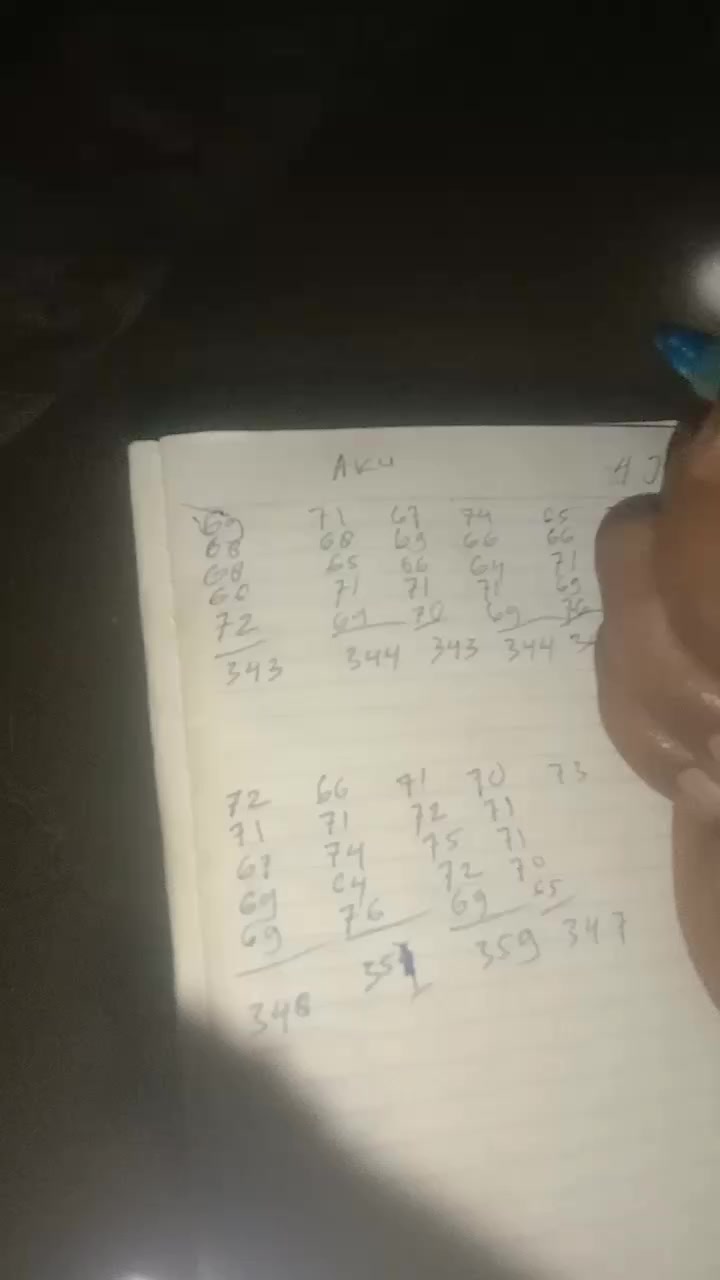 AKU 4 J
69 71 67 74 65
68 68 69 66 66
68 65 66 64 71
60 71 71 71 69
72 69 70 69 76
343 344 343 344
72 66 71 70 73
71 71 72 71
67 74 75 71
69 64 72 70
69 76 69 65
348 351 359 347